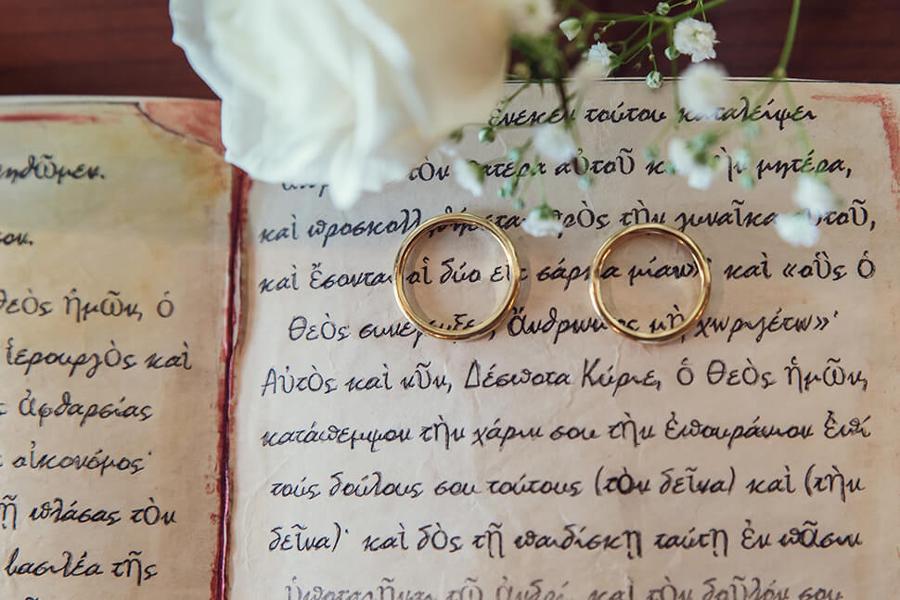 ηθῶμεν.
Θεὸς ἡμῶν, ὁ
ἱερουργὸς καὶ
ἀφθαρσίας
οἰκονόμος·
πλάσας τὸν
βασιλέα τῆς
ἕνεκεν τούτου καταλείψει
τὸν πατέρα αὐτοῦ μητέρα,
καὶ πρὸς τὴν γυναῖκα αὐτοῦ,
καὶ ἔσονται οἱ δύο εἰς σάρκα μίαν» καὶ «οὓς ὁ
Θεὸς συνέζευξε, ἄνθρωπος μὴ χωριζέτω»·
Αὐτὸς καὶ νῦν, Δέσποτα Κύριε, ὁ Θεὸς ἡμῶν,
κατάπεμψον τὴν χάριν σου τὴν ἐπουράνιον ἐπὶ
τοὺς δούλους σου τούτους (τὸν δεῖνα) καὶ (τὴν
δεῖνα)· καὶ δὸς τῇ παιδίσκῃ ταύτῃ ἐν πᾶσιν
ὑποταγῆναι τῷ ἀνδρί, καὶ τὸν δοῦλόν σου